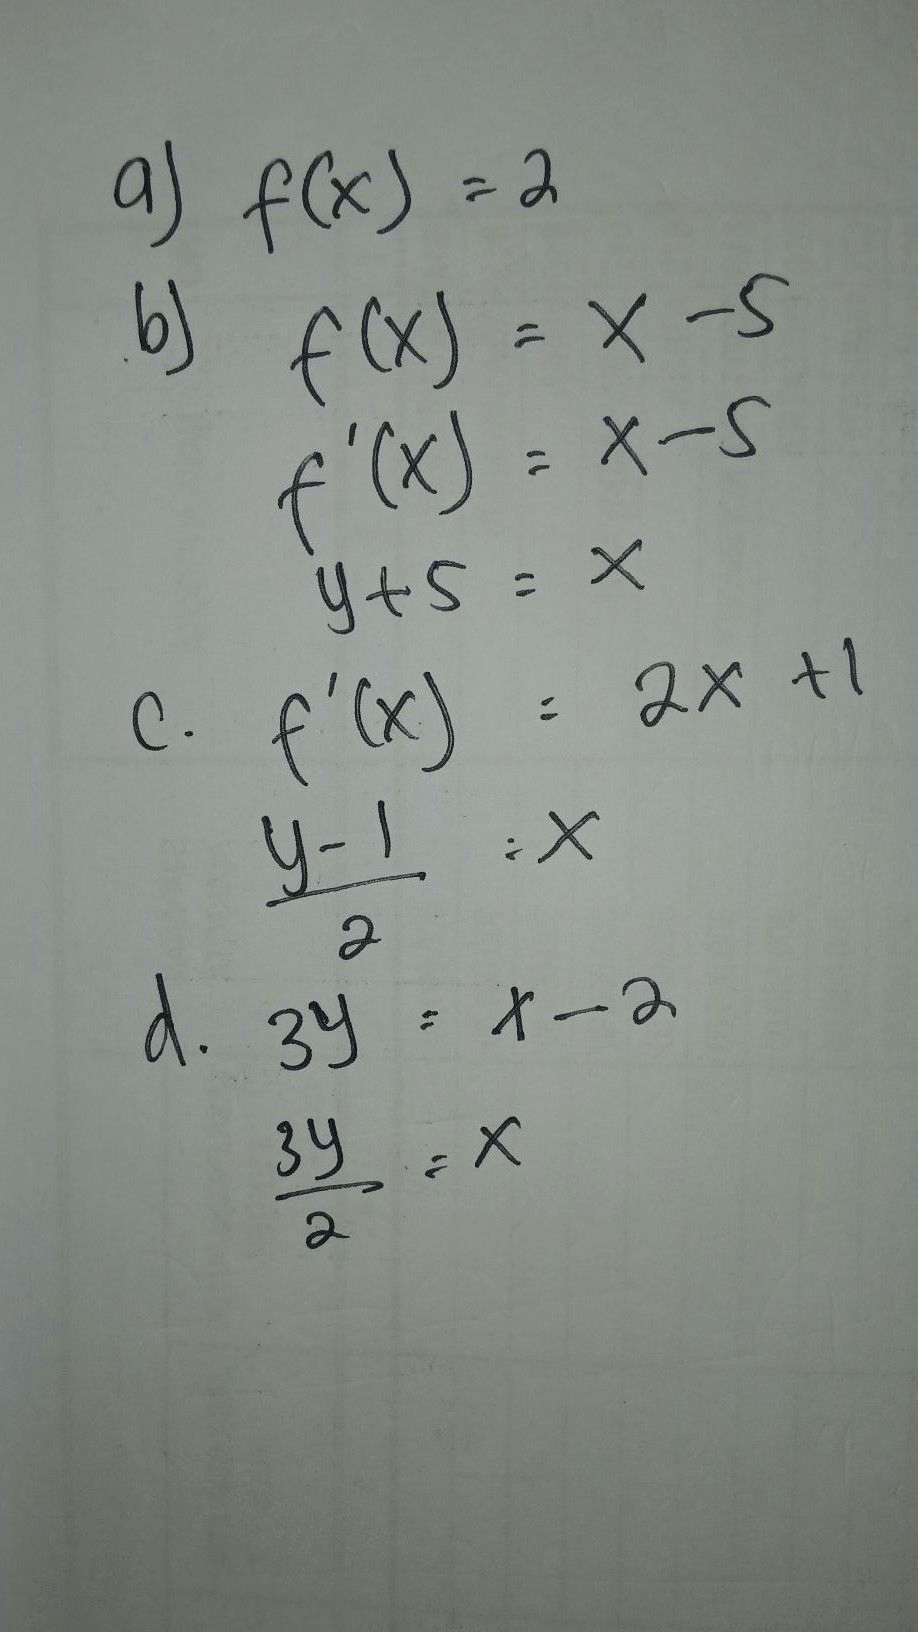 a) f(x) = 2
b) f(x) = x - 5
f'(x) = x - 5
y + 5 = x
c. f'(x) = 2x + 1
y - 1 / 2 = x
d. 3y = x - 2
3y / 2 = x